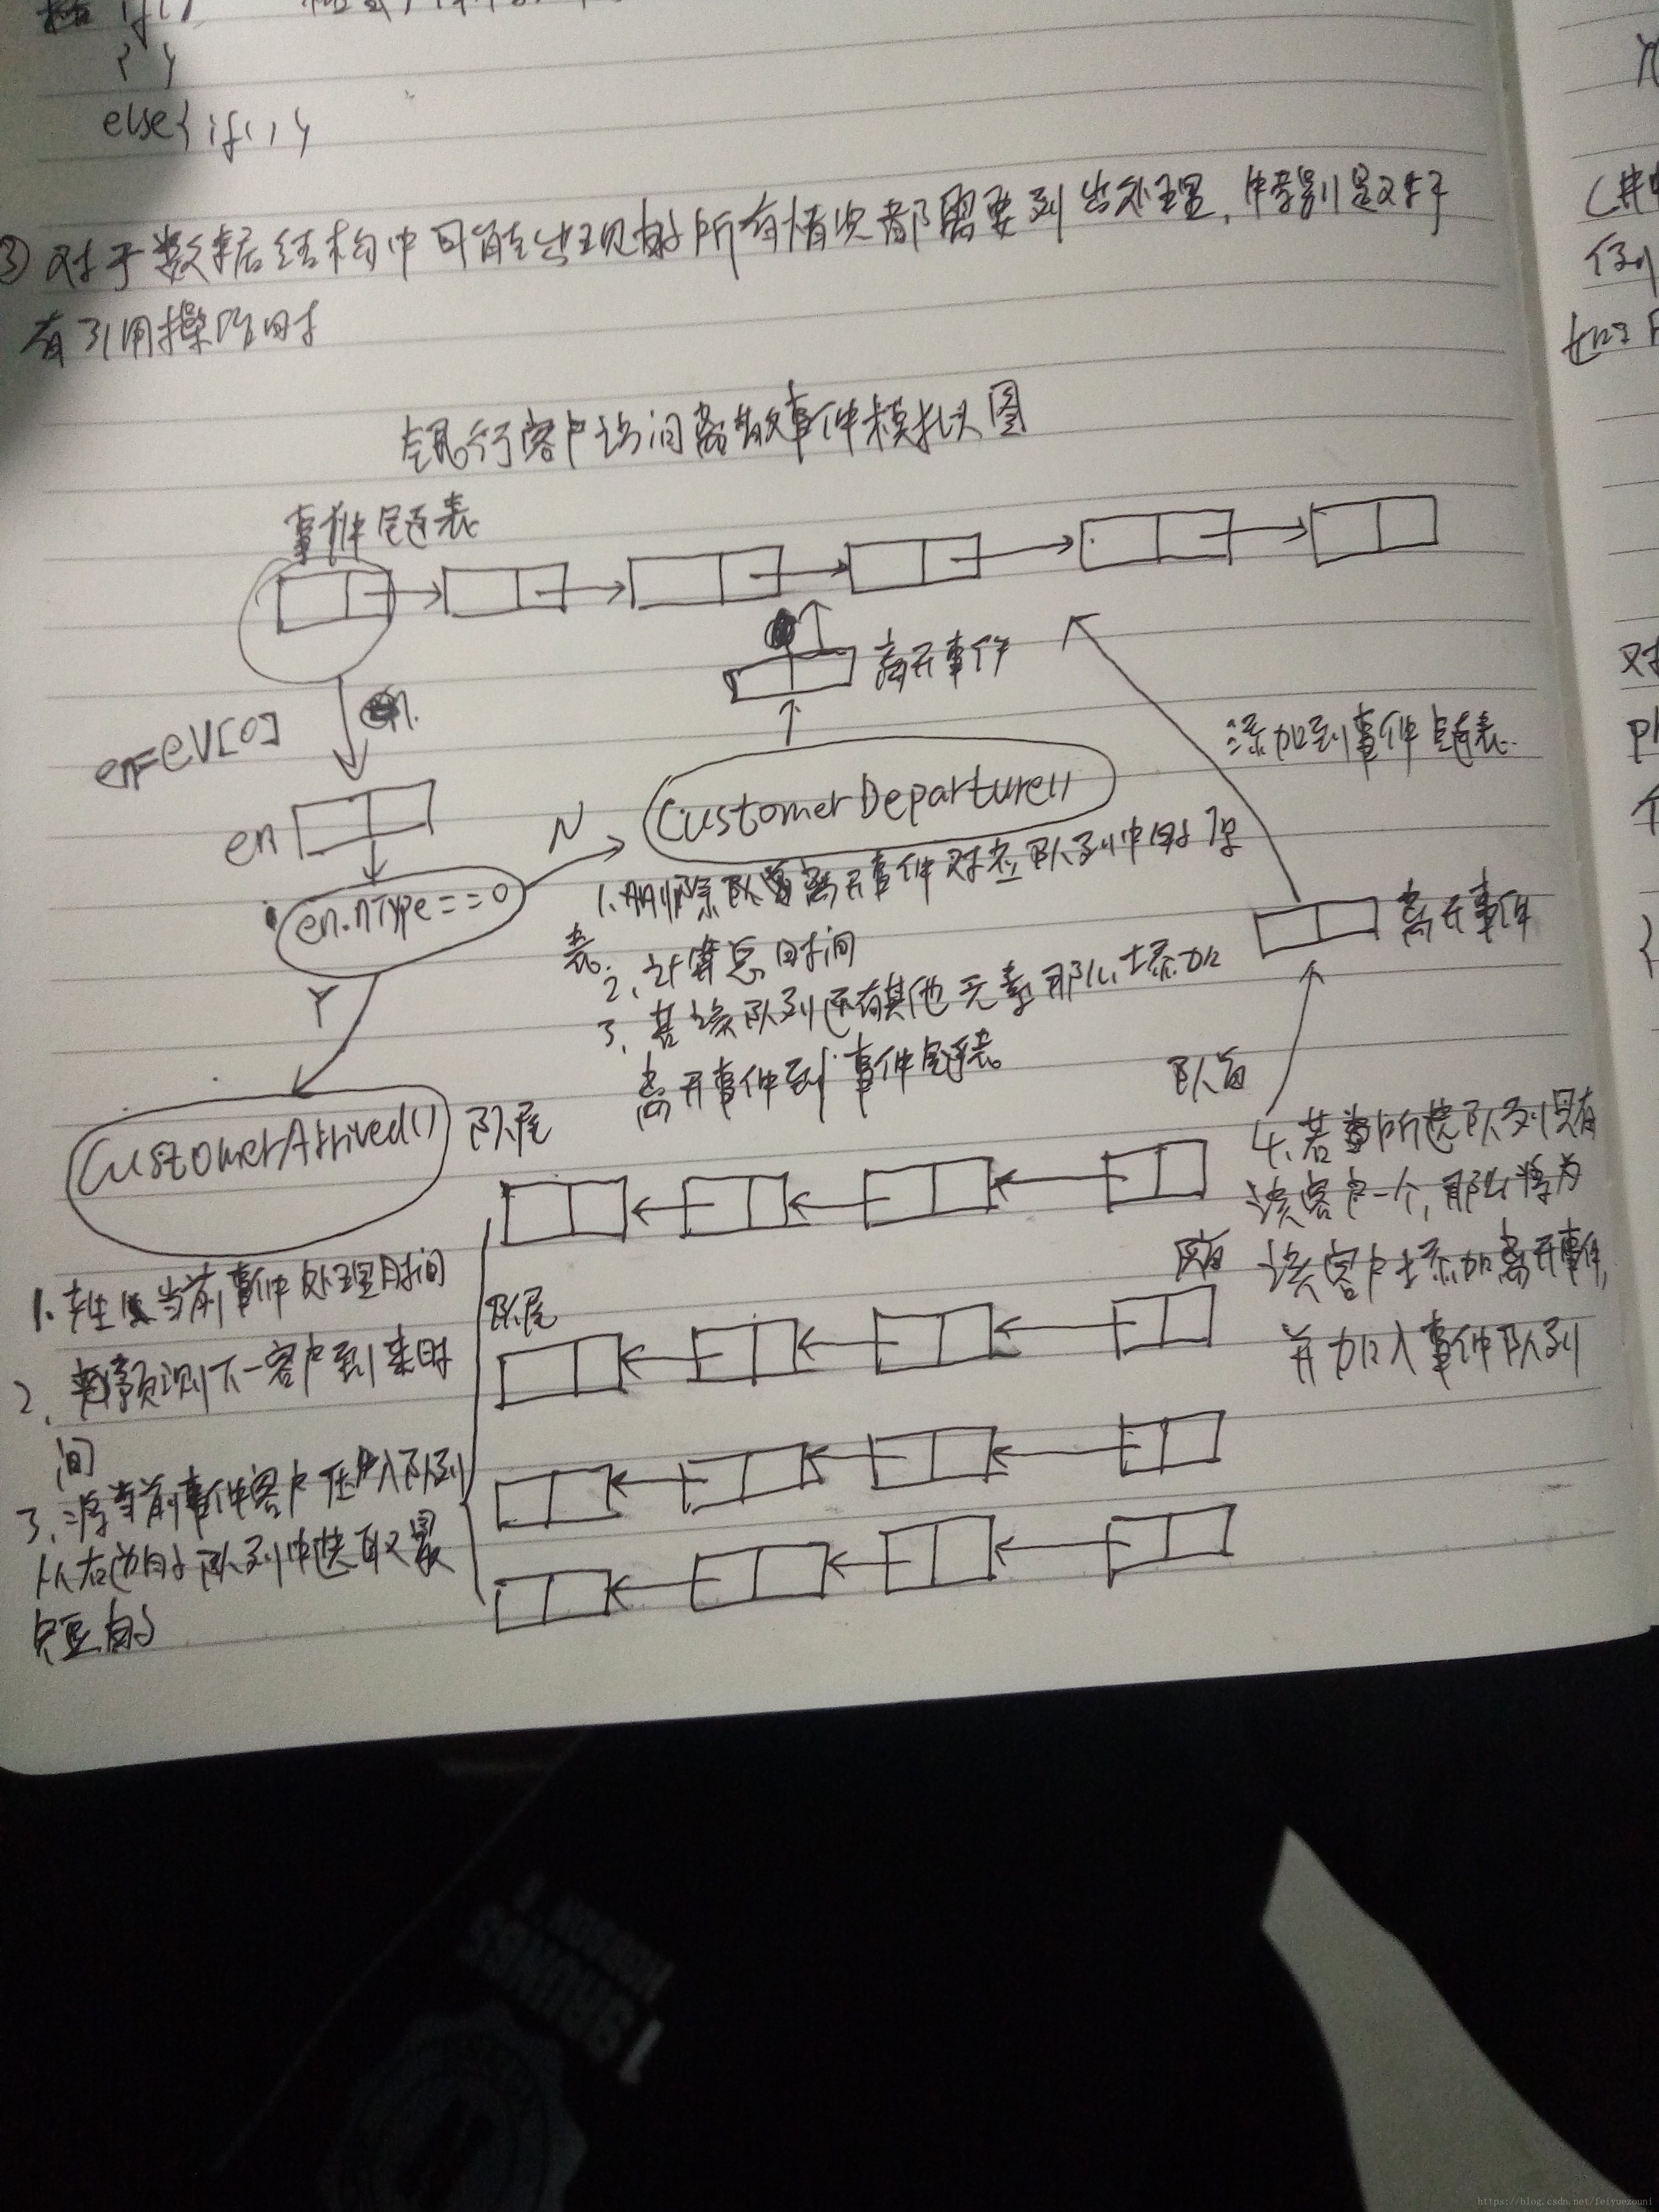 else{if()}
③对于数据结构中可能出现的所有情况都需要列出处理,特别是对于
有引用操作时
银行客户访问离散事件模拟图
事件链表
离开事件
en=ev[0]
en.
添加到事件链表.
en
N
CustomerDeparture()
en.nType==0
1.删除队首离开事件对应队列中的元
素.
2,计算总时间
3、若该队列还有其他元素那么添加
离开事件到事件链表
离开事件
Y
CustomerArrived()
队尾
队首
4、若所选队列只有
该客户一个,那么将为
该客户添加离开事件,
并加入事件队列
队首
队尾
1.产生当前事件处理时间
2、预测下一客户到来时
间
3、将当前事件客户压入队列
从右边的队列中选取最
短的
https://blog.csdn.net/feiyuezouni